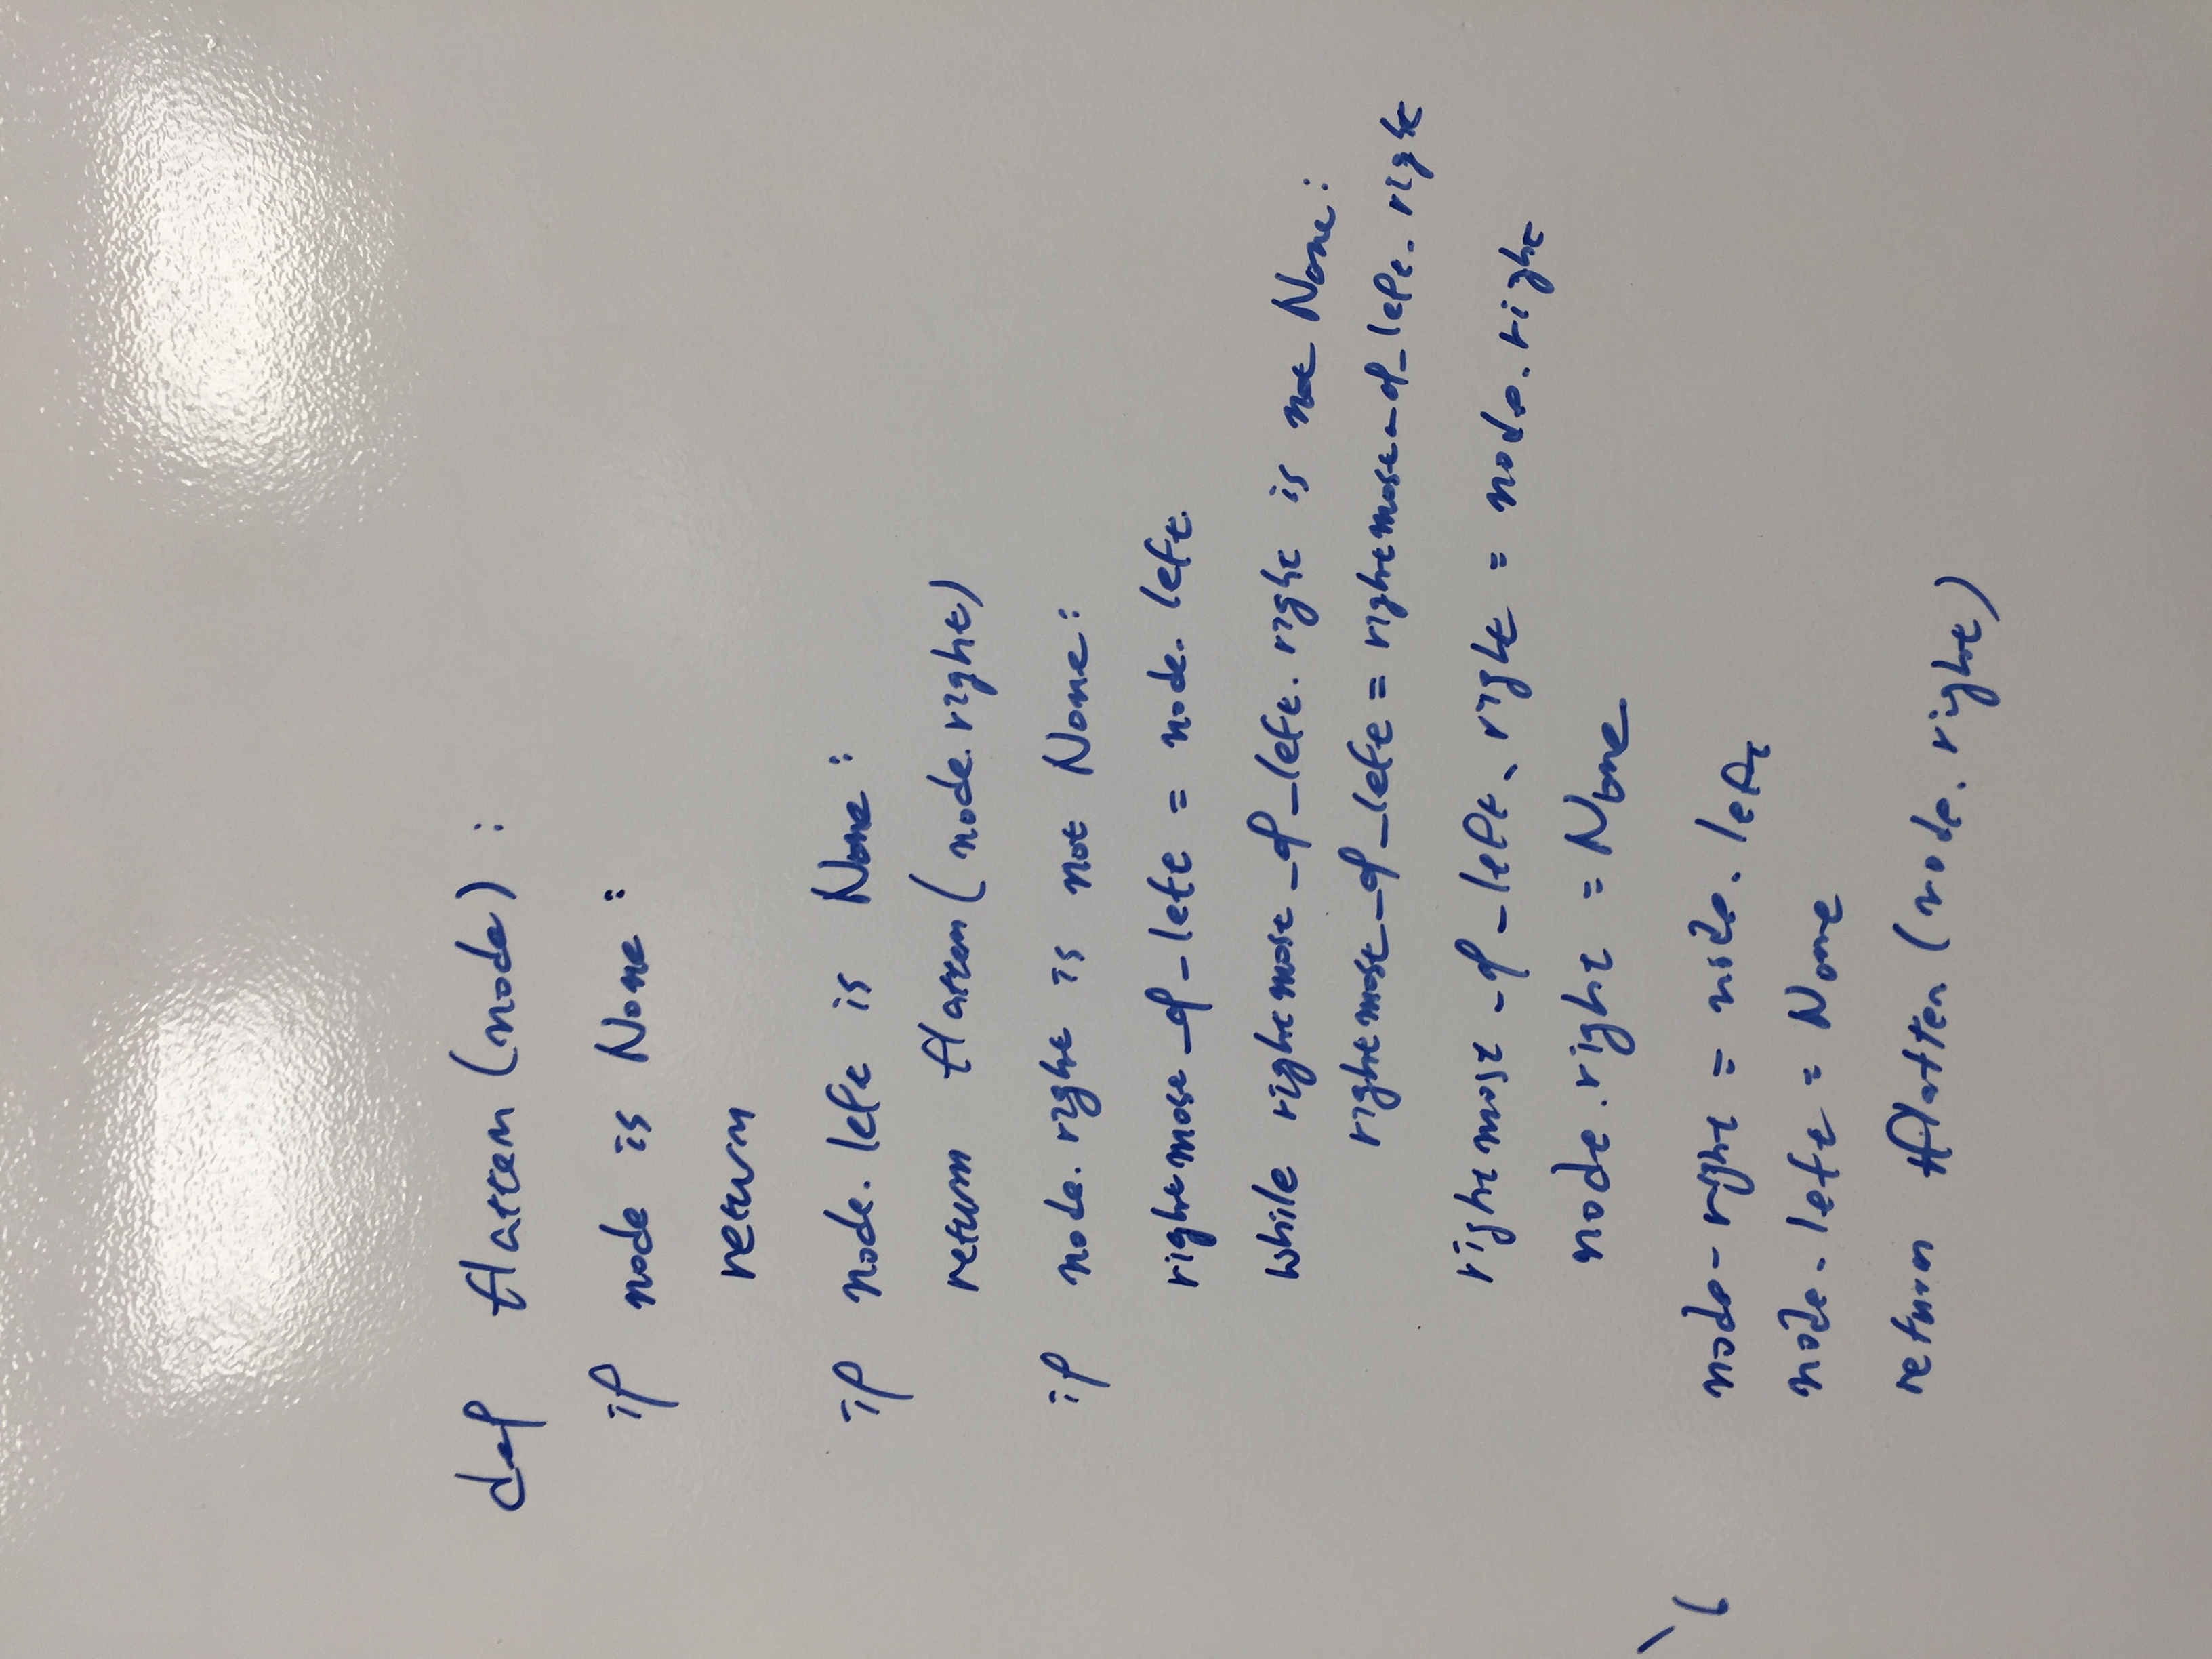 def flatten (node) :
if node is None :
return
if node. left is None :
return flatten ( node. right )
if node. right is not None :
rightmost_of_left = node. left
while rightmost_of_left. right is not None :
rightmost_of_left = rightmost_of_left. right
rightmost_of_left. right = node. right
node. right = None
node. right = node. left
node. left = None
return flatten ( node. right )